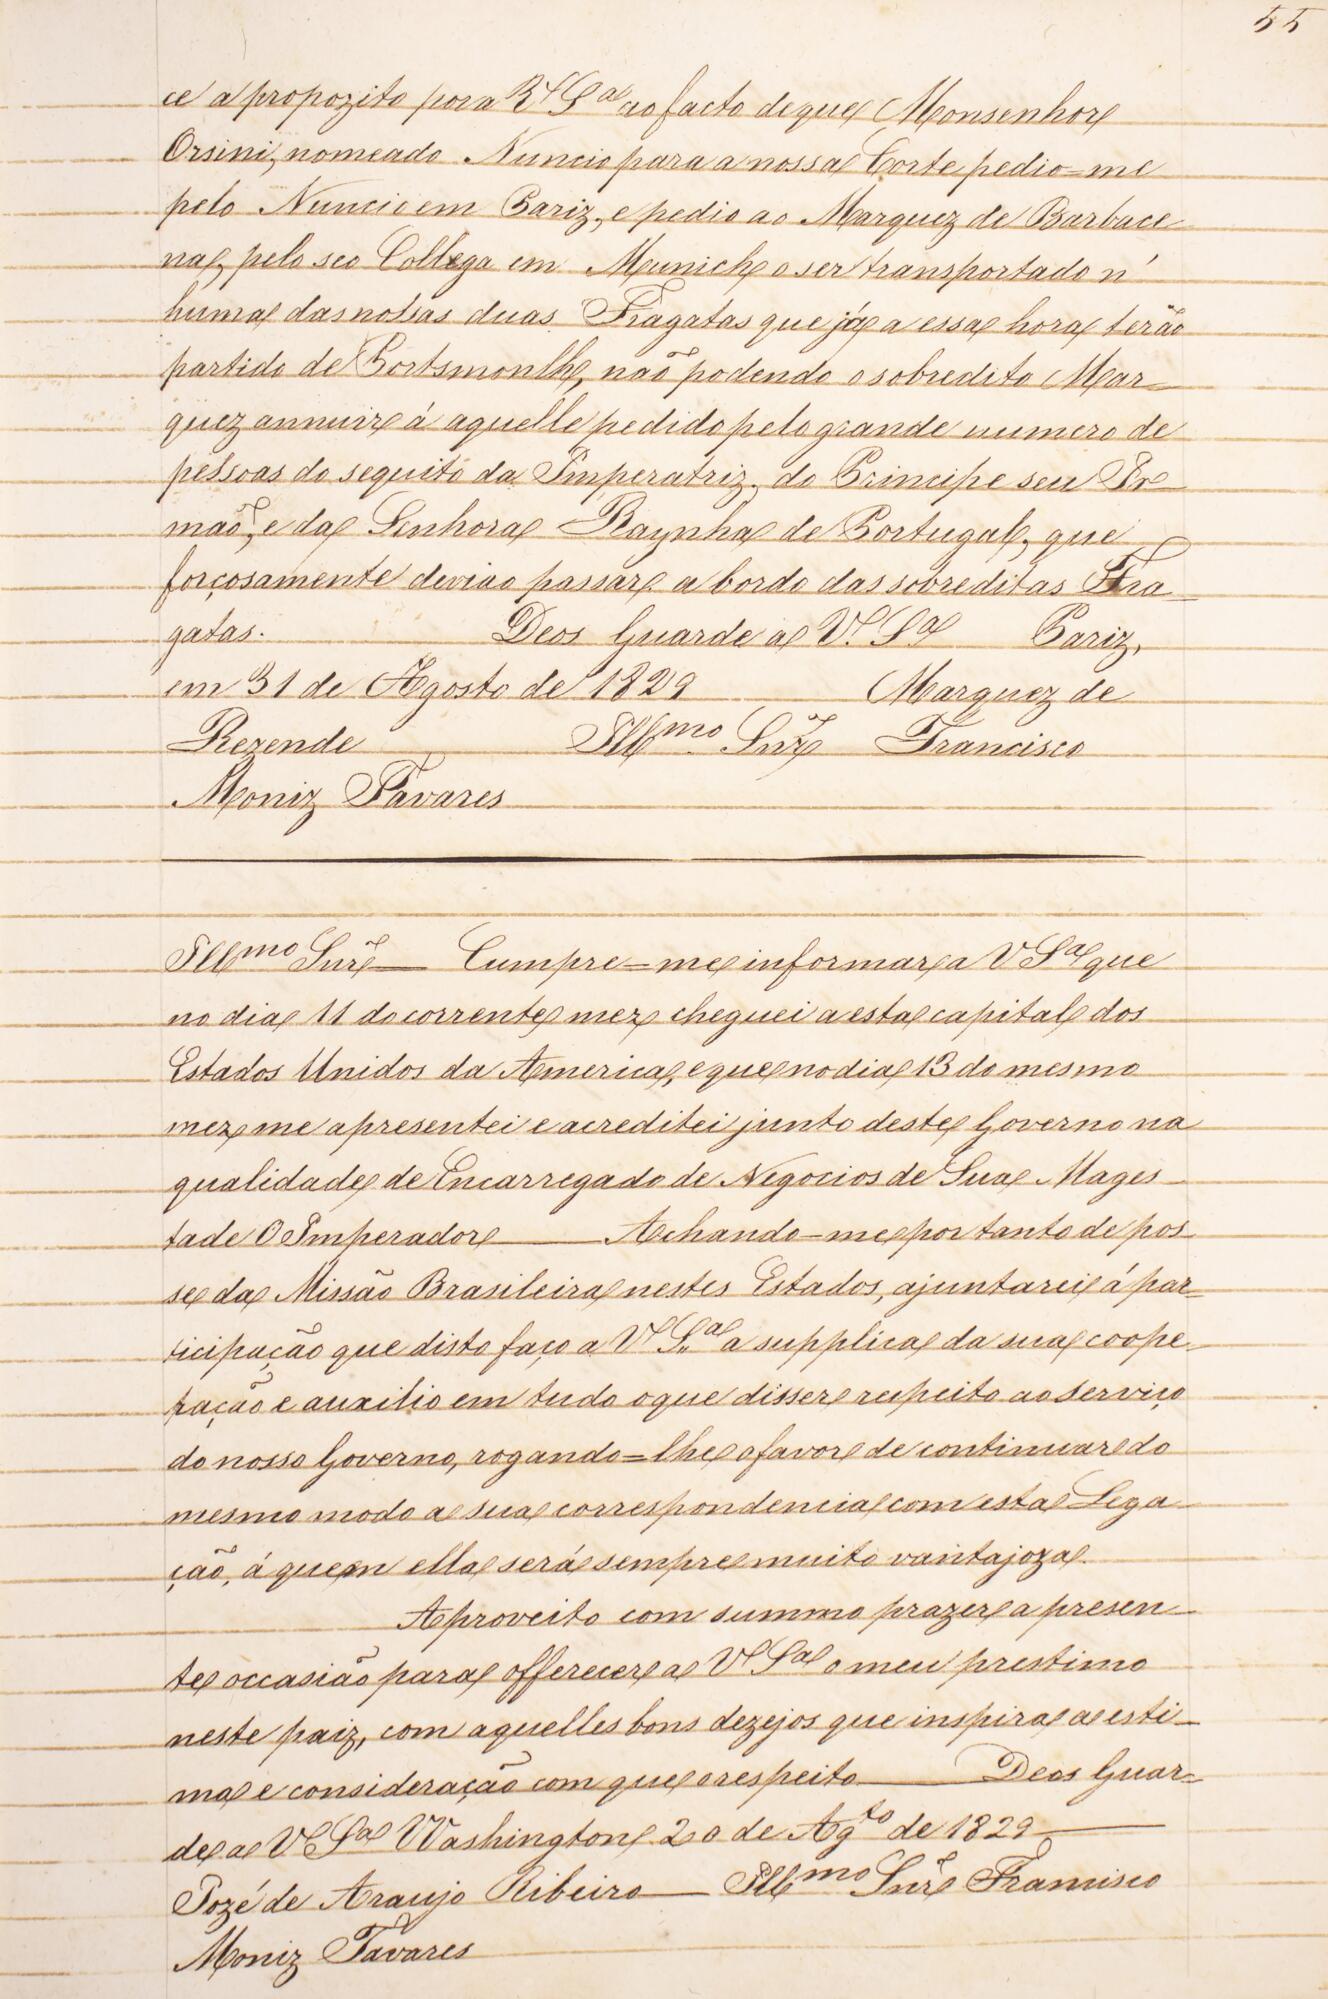 55
ce a propozito por a Vª Sª ao facto de que Monsenhor
Orsini, nomeado Nuncio para a nossa Corte pedio=me
pelo Nuncio em Pariz, e pedio ao Marquez de Barbace
na, pelo seo Collega em Munich o ser transportado n'
huma das nossas duas Fragatas que já a essa hora terão
partido de Portsmonth, não podendo o sobredito Mar_
quez annuir á aquelle pedido pelo grande numero de
pessoas do sequito da Imperatriz, do Principe seu Ir_
mão, e da Senhora Raynha de Portugal, que
forçosamente devião passar a bordo das sobreditas Fra_
gatas. Deos Guarde a V. Sª Pariz,
em 31 de Agosto de 1829 Marquez de
Rezende Illmo Snr Francisco
Moniz Tavares
Illmo Snr — Cumpre=me informar a V Sª que
no dia 11 do corrente mez cheguei a esta capital dos
Estados Unidos da America, e que no dia 13 do mesmo
mez me apresentei e acreditei junto deste Governo na
qualidade de Encarregado de Negocios de Sua Mages_
tade O Imperador — Achando-me por tanto de pos_
se da Missão Brasileira nestes Estados, ajuntarei á par=
ticipação que disto faço a V Sª a supplica da sua coope_
ração e auxilio em tudo o que disser respeito ao serviço
do nosso Governo, rogando=lhe o favor de continuar do
mesmo modo a sua correspondencia com esta Lega_
ção, á quem ella será sempre muito vantajoza.
Aproveito com summo prazer a presen_
te occasião para offerecer a V Sª o meu prestimo
neste paiz, com aquelles bons dezejos que inspira a esti_
ma e consideração com que o respeito — Deos Guar=
de a V Sª Washington 20 de Agto de 1829 —
Jozé de Araujo Ribeiro — Illmo Snr Francisco
Moniz Tavares